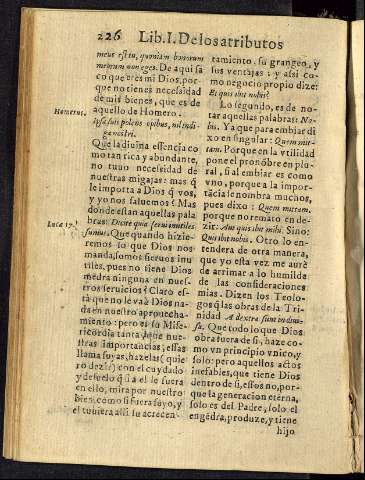 226 Lib. I. De los atributos
meus es tu, quoniam bonorum
meorum non eges. De aqui sa
co que eres mi Dios, por-
que no tienes necessidad
de mis bienes, que es de
aquello de Homero.
Homerus.
Ipsa suis pollens opibus, nil indi
ga nostri.
Que la diuina essencia co
mo tan rica y abundante,
no tuuo necessidad de
nuestras migajas: mas q̃
le importa a Dios q̃ vos,
y yo nos saluemos? Mas
donde estan aquellas pala
bras: Dicite quia serui inutiles
Luca 17.
sumus. Que quando hizie-
remos lo que Dios nos
manda, somos sieruos inu
tiles, pues no siene Dios
medra ninguna en nues-
tros seruicios? Claro es-
tà que no lleua Dios na-
da en nuestro aprouecha-
miento: pero es su Mise-
ricordia tanta, que nues-
tras importancias, essas
llama suyas, hazelas (quie
ro dezir) con el cuydado
y desuelo q̃ si a el le fuera
en ello, mira por nuestro
bien, como si fuera suyo, y
el tuuiera alli su acrecen-
tamiento, su grangeo, y
sus ventajas: y assi co-
mo negocio propio dize:
Et quis ibit nobis?
Lo segundo, es de no-
tar aquellas palabras: No-
bis. Ya que para embiar di
xo en singular: Quem mit-
tam. Porque en la vtilidad
pone el pronōbre en plu-
ral, si al embiar es como
vno, porque a la impor-
tācia le nombra muchos,
pues dixo: Quem mittam,
porque no remato en de-
zir: Aut quis ibit mihi. Sino:
Quis ibit nobis. Otro lo en-
tendera de otra manera,
que yo esta vez me auré
de arrimar a lo humilde
de las consideraciones
mias. Dizen los Teolo-
gos q̃ las obras de la Tri-
nidad Ad extra sunt indiui-
sa. Que todo lo que Dios
obra fuera de si, haze co-
mo vn principio vnico, y
solo: pero aquellos actos
inefables, que tiene Dios
dentro de si, essos no, por-
que la generacion eterna,
solo es del Padre, solo el
engēdra, produze, y tiene
hijo